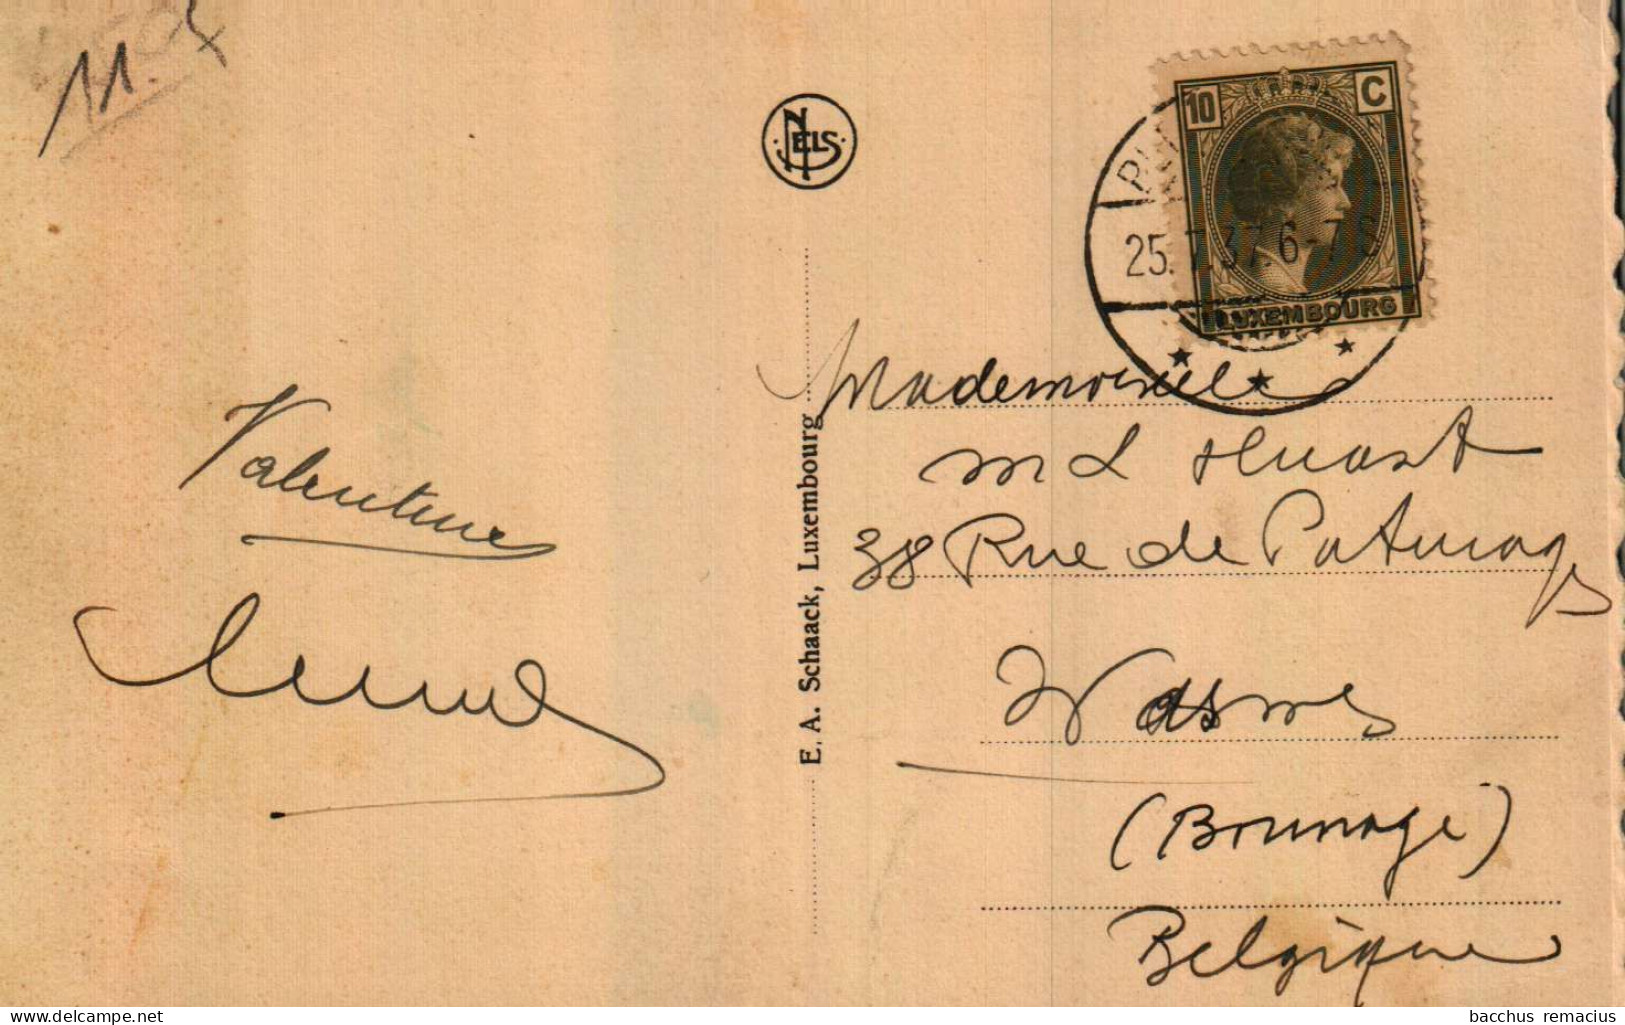 11.
NELS
10 C
LUXEMBOURG
25.7.37.6-7
E. A. Schaack, Luxembourg
Valentine
Mademoiselle
38 Rue de Paturages
Wasmes
(Borinage)
Belgique
delcampe.net
bacchus_remacius